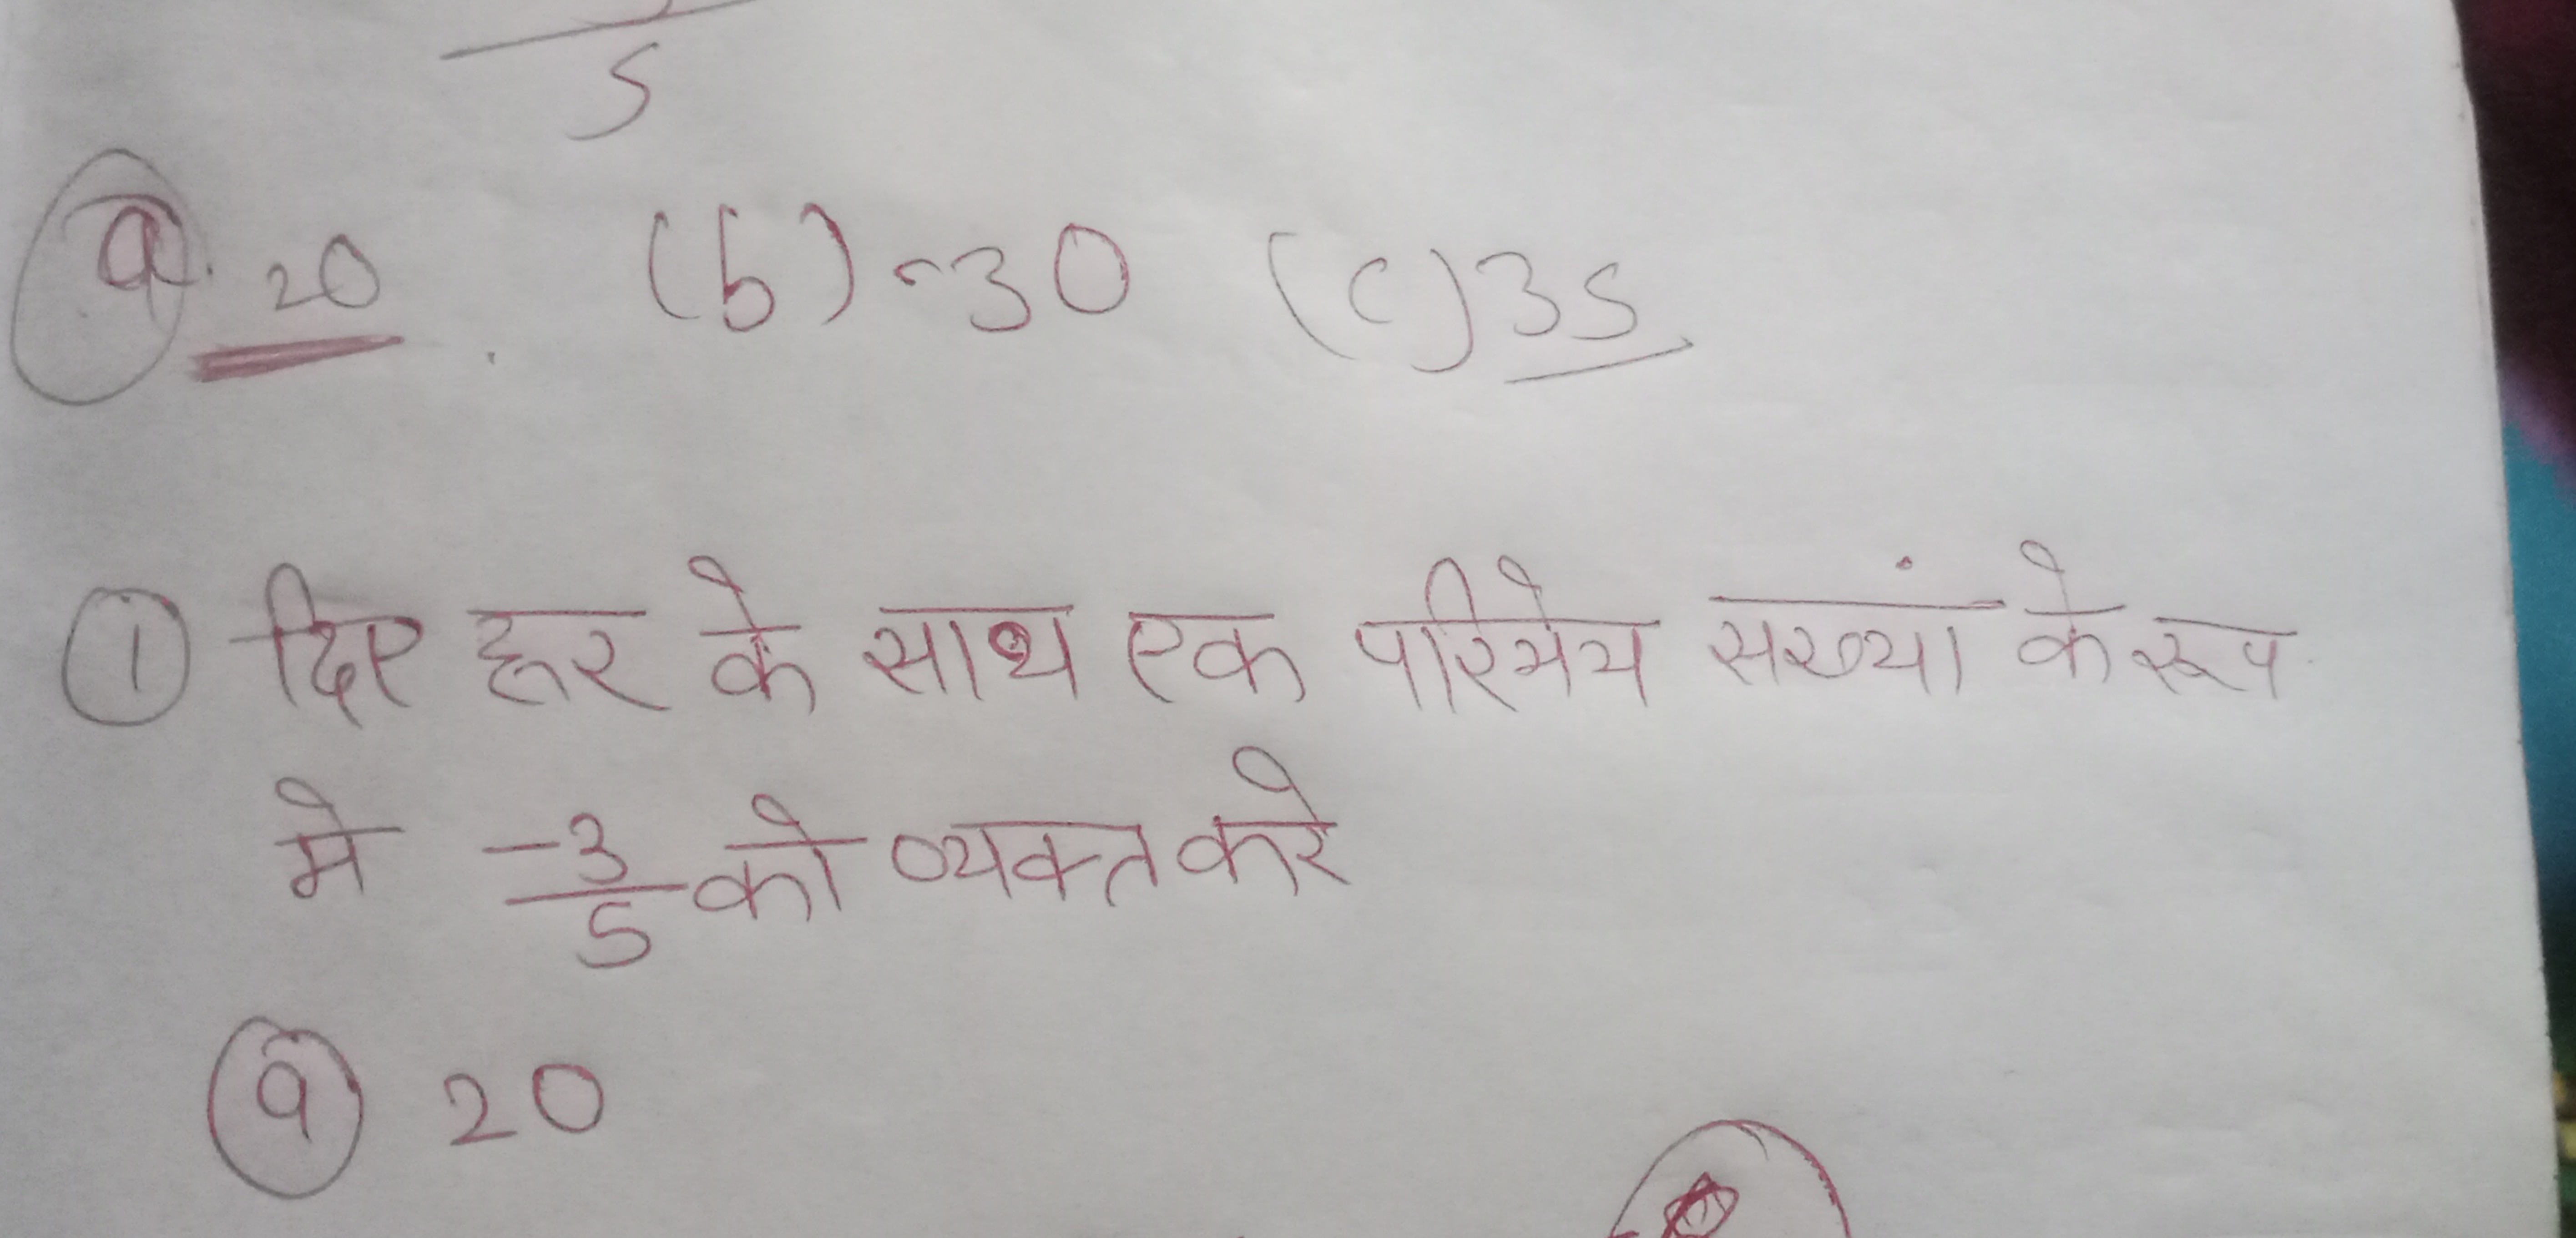 5
a. 20 (b) -30 (c) 35
① दिए हर के साथ एक परिमेय सख्यां के रूप
मे -3/5 को व्यक्त करे
ⓐ 20